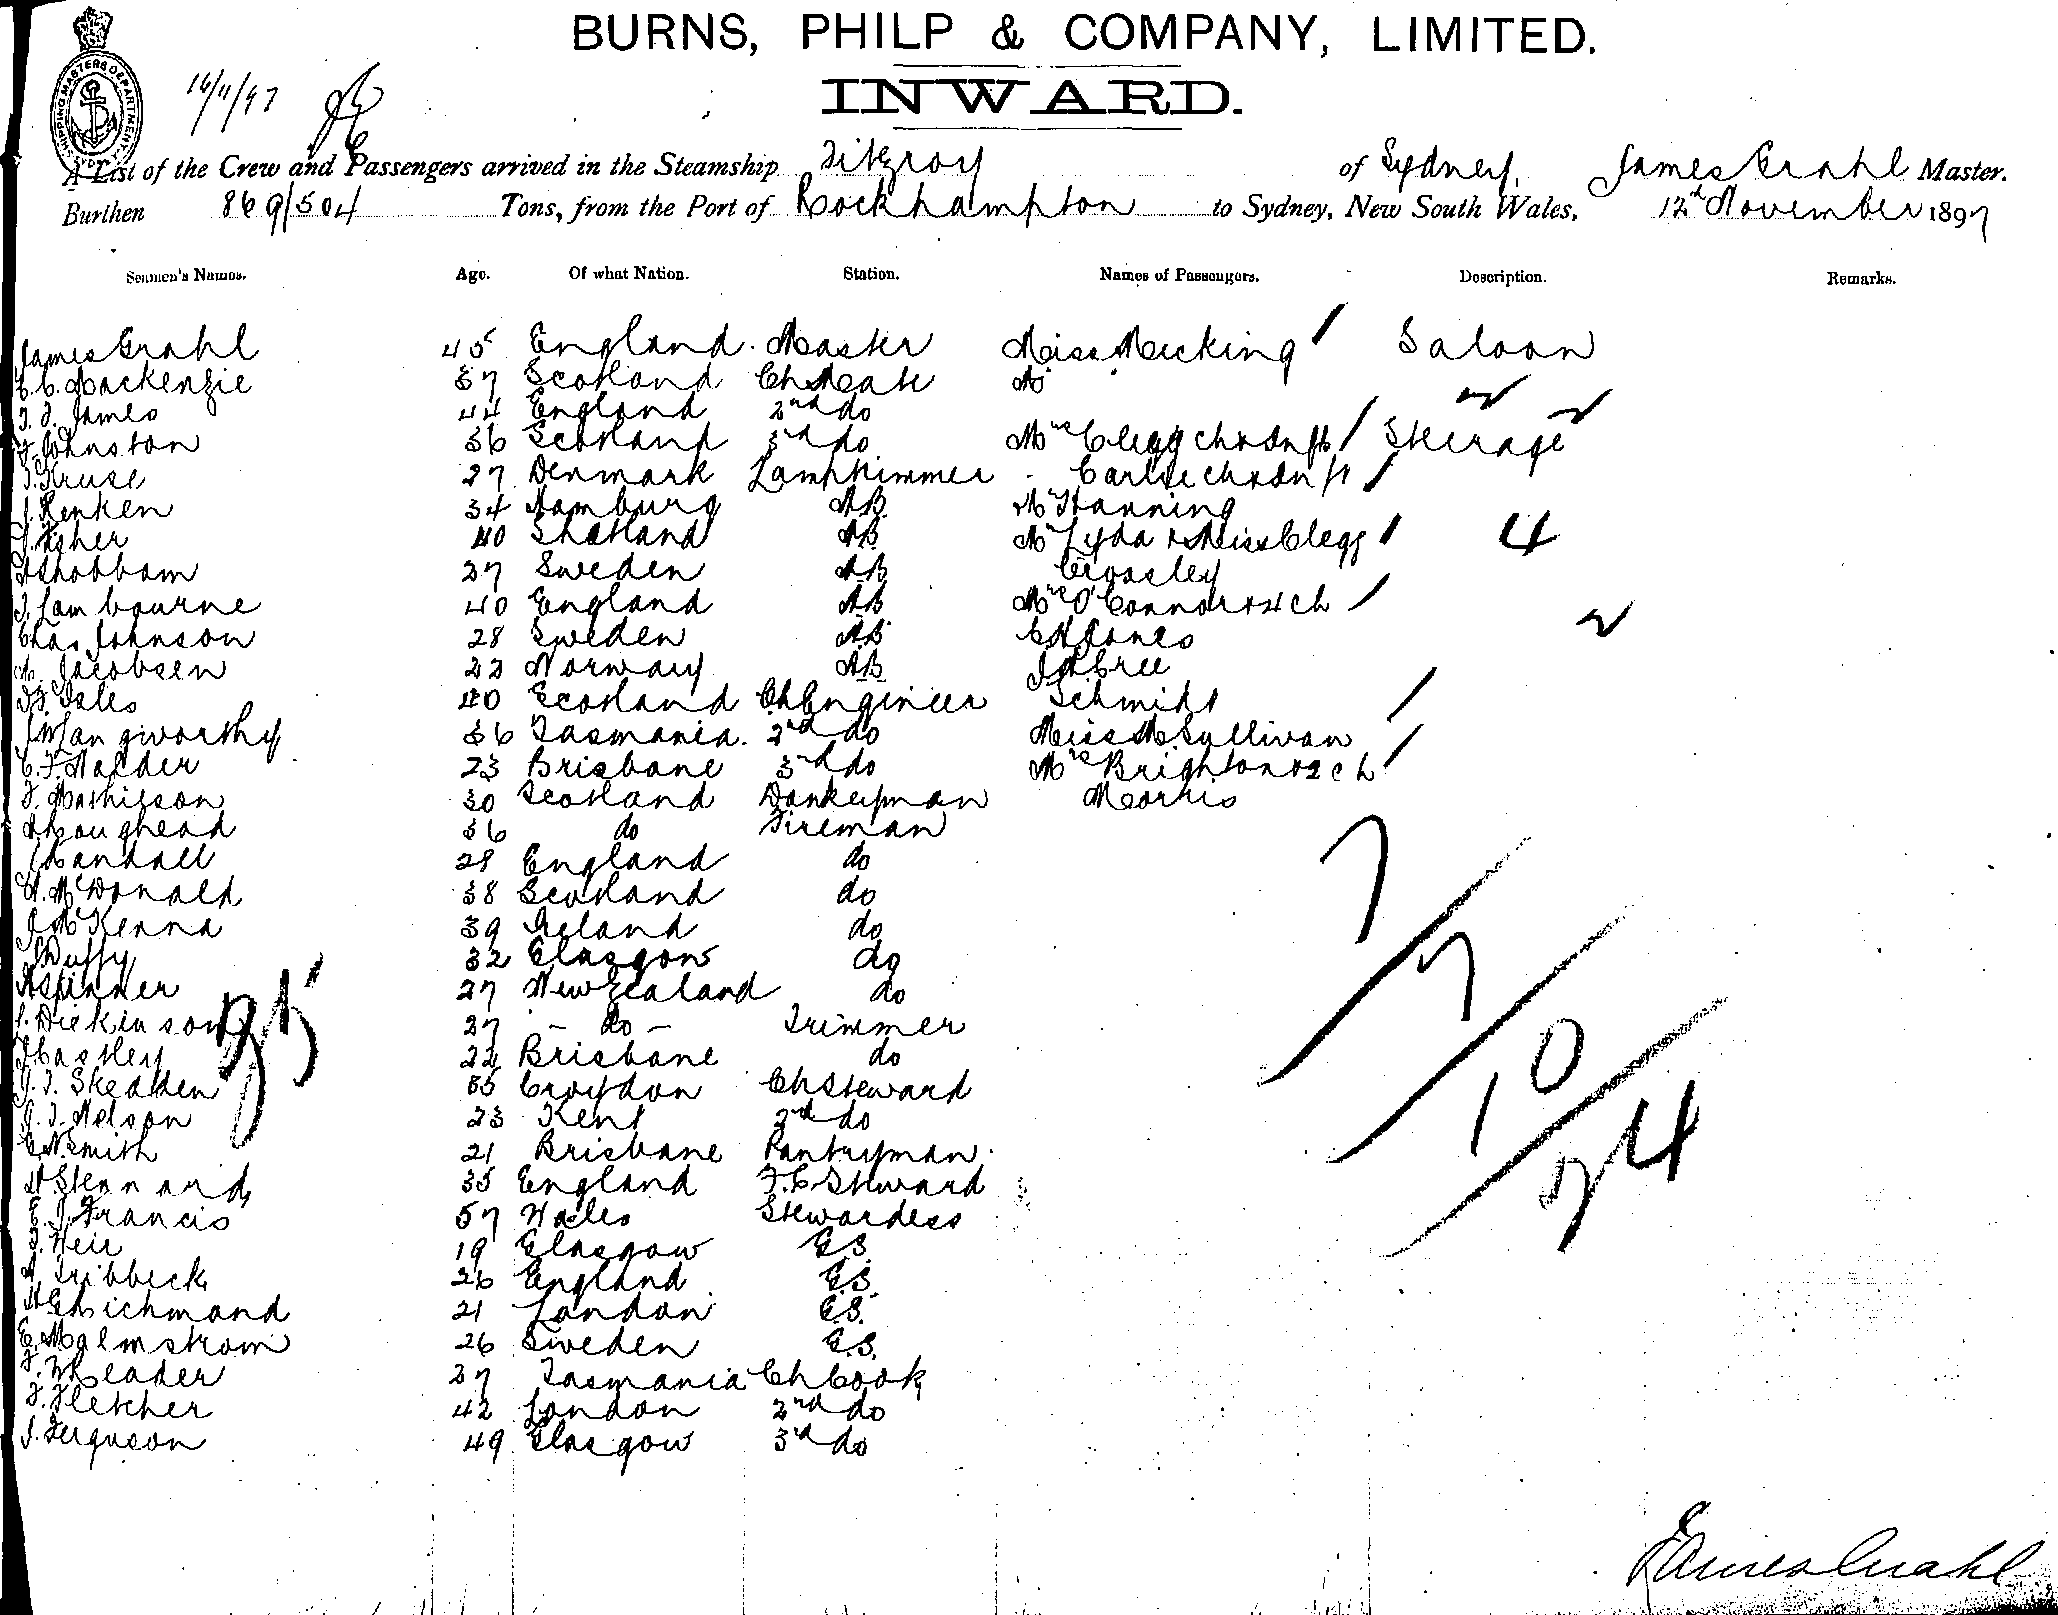 BURNS, PHILP & COMPANY, LIMITED.
INWARD.
SHIPPING MASTERS DEPARTMENT SYDNEY
16/11/97
A List of the Crew and Passengers arrived in the Steamship Fitzroy of Sydney, James Grahl Master.
Burthen 869/504 Tons, from the Port of Rockhampton to Sydney, New South Wales, 12th November 1897
Seamen's Names. Age. Of what Nation. Station. Names of Passengers. Description. Remarks.
James Grahl 45 England Master Miss Mecking Saloon
Mackenzie 37 Scotland Ch Mate
James 44 England 2nd do
Johnston 36 Scotland 3rd do Mrs Clegg ch & Inft Steerage
Kruse 27 Denmark Lamptrimmer ch & Inft
Renken 34 Hamburg AB Hanning
Fisher 40 Shetland AB Lyda & Miss Clegg 4
27 Sweden AB Crossley
Lambourne 40 England AB Mrs O'Connor & 4 ch
Chas Johnson 28 Sweden AB Jones
Jacobsen 22 Norway AB
40 Scotland Ch Engineer Schmidt
Langworthy 36 Tasmania 2nd do Miss M Sullivan
23 Brisbane 3rd do Mrs Brighton & 2 ch
Mathieson 30 Scotland Donkeyman Morris
36 do Fireman
28 England do
McDonald 38 Scotland do
McKenna 39 Ireland do
Duffy 32 Glasgow do
27 New Zealand do
Dickinson 27 - do - Trimmer
22 Brisbane do
Skedden 35 Croydon Ch Steward
Nelson 23 Kent 2nd do
Smith 21 Brisbane Pantryman
Stennard 35 England F.C. Steward
Francis 57 Wales Stewardess
Weir 19 Glasgow G.S.
Tribbeck 26 England G.S.
Richmond 21 London G.S.
Malmstrom 26 Sweden G.S.
37 Tasmania Ch Cook
Fletcher 42 London 2nd do
J. Ferguson 49 Glasgow 3rd do
35
7
7
10
24
James Grahl